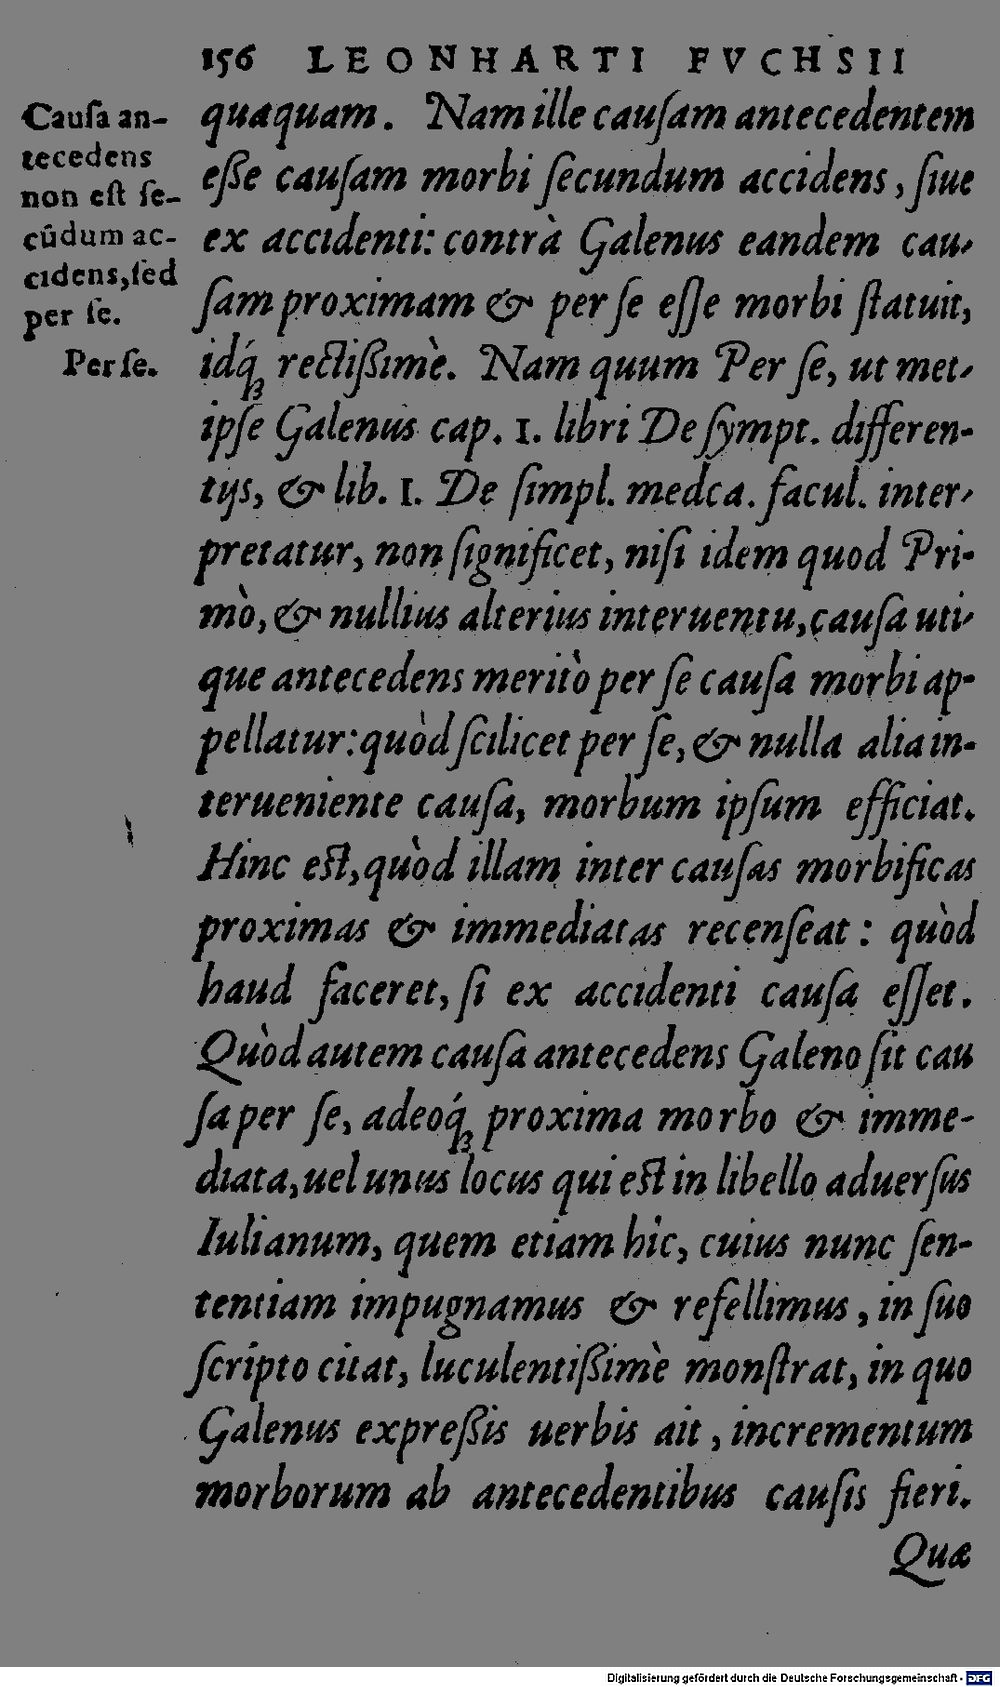 156 LEONHARTI FVCHSII
Cauſa an-
tecedens
non eſt ſe-
cūdum ac-
cidens, ſed
per ſe.
Per ſe.
quaquam. Nam ille cauſam antecedentem
eſſe cauſam morbi ſecundum accidens, ſiue
ex accidenti: contrà Galenus eandem cau-
ſam proximam & per ſe eſſe morbi ſtatuit,
idq́ꝫ rectißimè. Nam quum Per ſe, ut met-
ipſe Galenus cap. 1. libri De ſympt. differen-
tijs, & lib. 1. De ſimpl. medca. facul. inter-
pretatur, non ſignificet, niſi idem quod Pri-
mò, & nullius alterius interuentu, cauſa uti-
que antecedens meritò per ſe cauſa morbi ap-
pellatur: quòd ſcilicet per ſe, & nulla alia in-
terueniente cauſa, morbum ipſum efficiat.
Hinc eſt, quòd illam inter cauſas morbificas
proximas & immediatas recenſeat: quòd
haud faceret, ſi ex accidenti cauſa eſſet.
Quòd autem cauſa antecedens Galeno ſit cau
ſa per ſe, adeoq́ꝫ proxima morbo & imme-
diata, uel unus locus qui eſt in libello aduerſus
Iulianum, quem etiam hîc, cuius nunc ſen-
tentiam impugnamus & refellimus, in ſuo
ſcripto citat, luculentißimè monſtrat, in quo
Galenus expreßis uerbis ait, incrementum
morborum ab antecedentibus cauſis fieri.
Quæ
Digitalisierung gefördert durch die Deutsche Forschungsgemeinschaft - DFG